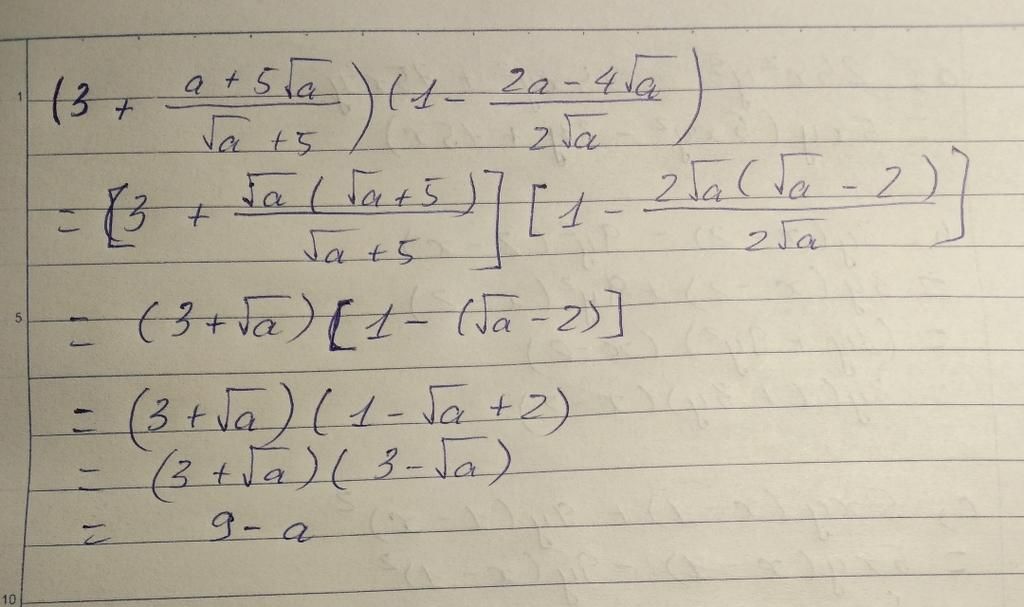 (3 + (a + 5√a)/(√a + 5))(1 - (2a - 4√a)/(2√a))
= [3 + (√a(√a + 5))/(√a + 5)] [1 - (2√a(√a - 2))/(2√a)]
= (3 + √a)[1 - (√a - 2)]
= (3 + √a)(1 - √a + 2)
= (3 + √a)(3 - √a)
= 9 - a